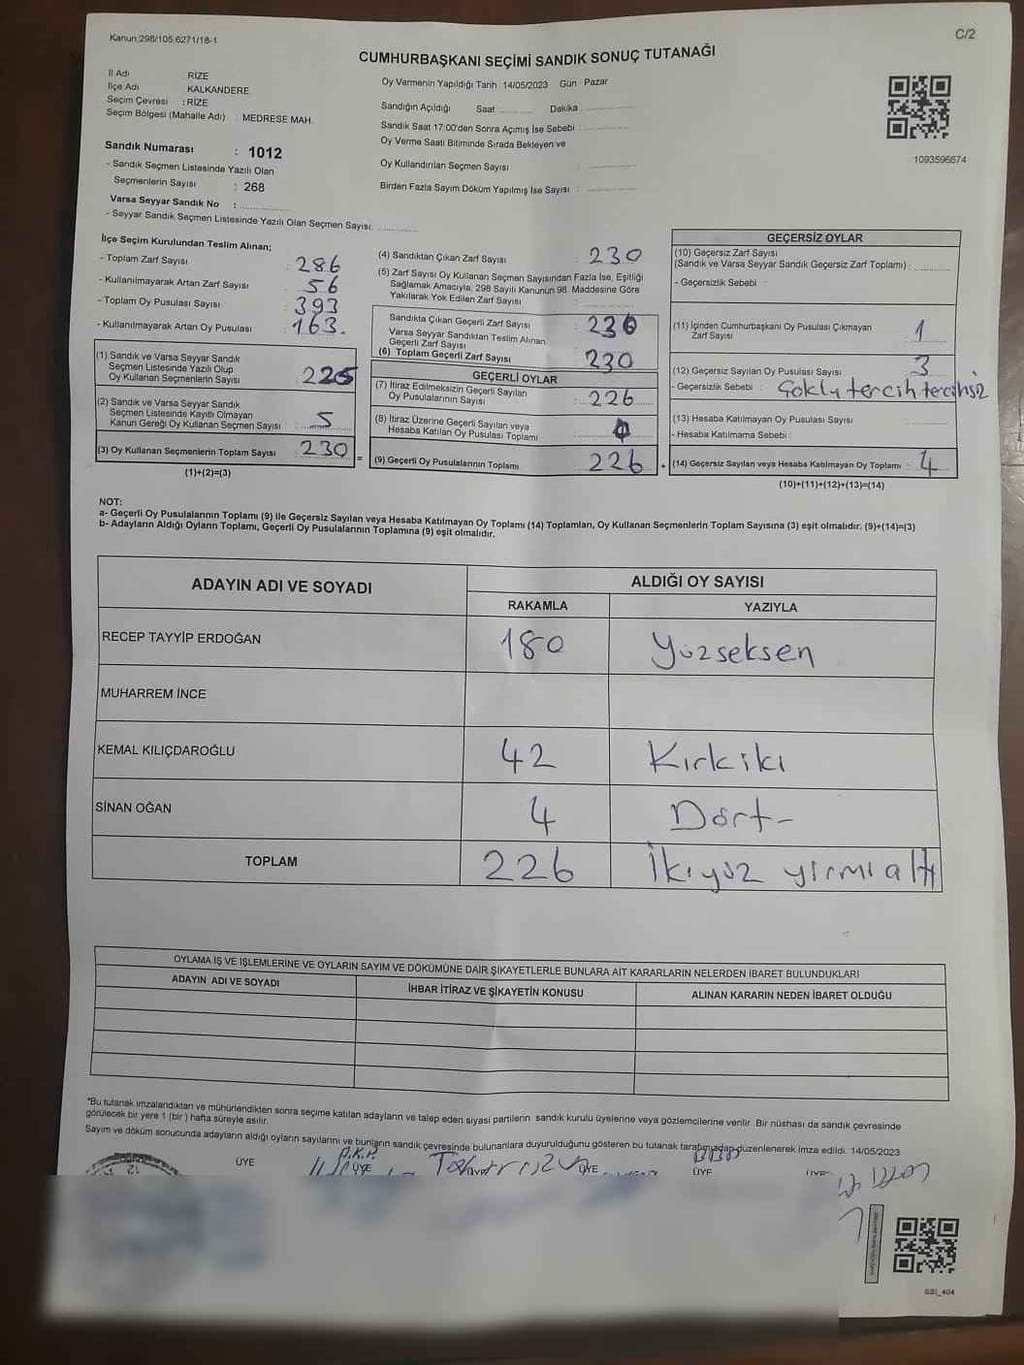 Kanun:298/105,6271/18-1
C/2
CUMHURBAŞKANI SEÇİMİ SANDIK SONUÇ TUTANAĞI
İl Adı : RİZE
İlçe Adı : KALKANDERE
Seçim Çevresi : RİZE
Seçim Bölgesi (Mahalle Adı) : MEDRESE MAH.
Oy Vermenin Yapıldığı Tarih 14/05/2023 Gün : Pazar
Sandığın Açıldığı Saat ......... Dakika ..............
Sandık Saat 17:00'den Sonra Açımış İse Sebebi : ..............
Oy Verme Saati Bitiminde Sırada Bekleyen ve
Oy Kullandırılan Seçmen Sayısı : ..............
Birden Fazla Sayım Döküm Yapılmış İse Sayısı : ..............
1093596674
Sandık Numarası : 1012
- Sandık Seçmen Listesinde Yazılı Olan
Seçmenlerin Sayısı : 268
Varsa Seyyar Sandık No : ..............
- Seyyar Sandık Seçmen Listesinde Yazılı Olan Seçmen Sayısı: ..............
İlçe Seçim Kurulundan Teslim Alınan;
- Toplam Zarf Sayısı : 286
- Kullanılmayarak Artan Zarf Sayısı : 56
- Toplam Oy Pusulası Sayısı : 393
- Kullanılmayarak Artan Oy Pusulası : 163.
(1) Sandık ve Varsa Seyyar Sandık
Seçmen Listesinde Yazılı Olup
Oy Kullanan Seçmenlerin Sayısı : 225
(2) Sandık ve Varsa Seyyar Sandık
Seçmen Listesinde Kayıtlı Olmayan
Kanun Gereği Oy Kullanan Seçmen Sayısı : 5
(3) Oy Kullanan Seçmenlerin Toplam Sayısı : 230
(1)+(2)=(3)
(4) Sandıktan Çıkan Zarf Sayısı : 230
(5) Zarf Sayısı Oy Kullanan Seçmen Sayısından Fazla İse, Eşitliği
Sağlamak Amacıyla, 298 Sayılı Kanunun 98. Maddesine Göre
Yakılarak Yok Edilen Zarf Sayısı : ..............
Sandıkta Çıkan Geçerli Zarf Sayısı : 230
Varsa Seyyar Sandıktan Teslim Alınan
Geçerli Zarf Sayısı
(6) Toplam Geçerli Zarf Sayısı : 230
GEÇERLİ OYLAR
(7) İtiraz Edilmeksizin Geçerli Sayılan
Oy Pusulalarının Sayısı : 226
(8) İtiraz Üzerine Geçerli Sayılan veya
Hesaba Katılan Oy Pusulası Toplamı :
(9) Geçerli Oy Pusulalarının Toplamı : 226
=
+
GEÇERSİZ OYLAR
(10) Geçersiz Zarf Sayısı
(Sandık ve Varsa Seyyar Sandık Geçersiz Zarf Toplamı) : ..............
- Geçersizlik Sebebi :
(11) İçinden Cumhurbaşkanı Oy Pusulası Çıkmayan
Zarf Sayısı : 1
(12) Geçersiz Sayılan Oy Pusulası Sayısı : 3
- Geçersizlik Sebebi : Çoklu tercih tercihsiz
(13) Hesaba Katılmayan Oy Pusulası Sayısı : ..............
- Hesaba Katılmama Sebebi :
(14) Geçersiz Sayılan veya Hesaba Katılmayan Oy Toplamı : 4
(10)+(11)+(12)+(13)=(14)
NOT:
a- Geçerli Oy Pusulalarının Toplamı (9) ile Geçersiz Sayılan veya Hesaba Katılmayan Oy Toplamı (14) Toplamları, Oy Kullanan Seçmenlerin Toplam Sayısına (3) eşit olmalıdır. (9)+(14)=(3)
b- Adayların Aldığı Oyların Toplamı, Geçerli Oy Pusulalarının Toplamına (9) eşit olmalıdır.
ADAYIN ADI VE SOYADI
ALDIĞI OY SAYISI
RAKAMLA YAZIYLA
RECEP TAYYİP ERDOĞAN 180 Yüzseksen
MUHARREM İNCE
KEMAL KILIÇDAROĞLU 42 Kırkiki
SİNAN OĞAN 4 Dört-
TOPLAM 226 İkiyüz yirmi altı
OYLAMA İŞ VE İŞLEMLERİNE VE OYLARIN SAYIM VE DÖKÜMÜNE DAİR ŞİKAYETLERLE BUNLARA AİT KARARLARIN NELERDEN İBARET BULUNDUKLARI
ADAYIN ADI VE SOYADI İHBAR İTİRAZ VE ŞİKAYETİN KONUSU ALINAN KARARIN NEDEN İBARET OLDUĞU
*Bu tutanak imzalandıktan ve mühürlendikten sonra seçime katılan adayların ve talep eden siyasi partilerin sandık kurulu üyelerine veya gözlemcilerine verilir. Bir nüshası da sandık çevresinde
görülecek bir yere 1 (bir ) hafta süreyle asılır.
Sayım ve döküm sonucunda adayların aldığı oyların sayılarını ve bunların sandık çevresinde bulunanlara duyurulduğunu gösteren bu tutanak tarafımızdan düzenlenerek imza edildi. 14/05/2023
A.K.P.
ÜYE ÜYE ÜYE ÜYE ÜYE
SBI_404